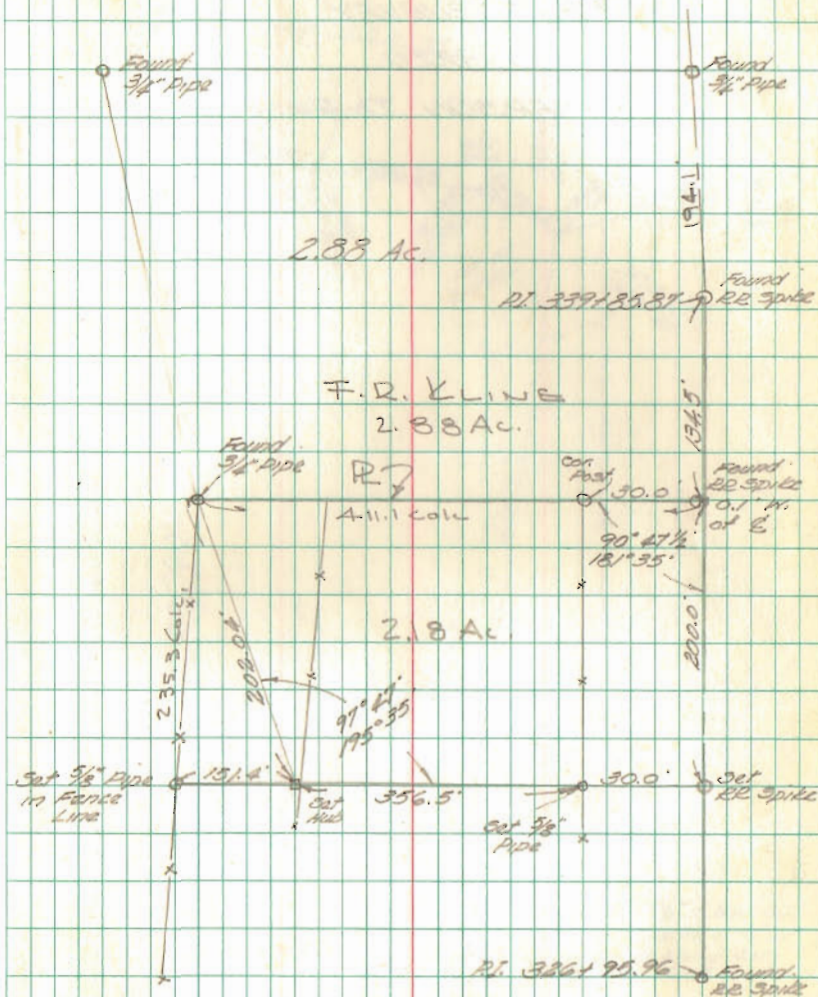 Found
3/4" Pipe
Found
3/4" Pipe
194.1'
2.88 Ac.
Found
RR Spike
P.I. 339+85.87
F.R. KLINE
2.88 Ac.
134.5'
Found
3/4" Pipe
cor.
Post
30.0'
Found
RR Spike
0.1' W.
of ℄
411.1 Calc
90° 47½'
181° 35'
2.18 Ac.
235.3 Calc.
202.04'
200.0'
97° 47'
195° 35'
Set 5/8" Pipe
in Fence
Line
151.4'
Set
Hub
356.5'
Set 5/8"
Pipe
30.0'
Set
RR Spike
P.I. 326+95.96
Found
RR Spike